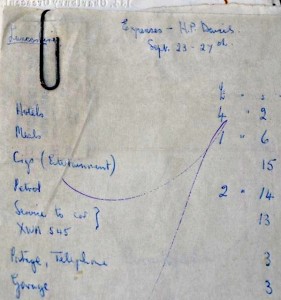 Expenses - H.P. Daniels
Sept. 23 - 27th
£ " s
Hotels 4 " 2
Meals 1 " 6
(Entertainment) 15
Petrol 2 " 14
Service to car } 13
XWA 545
Postage, Telephone 3
Garage 3